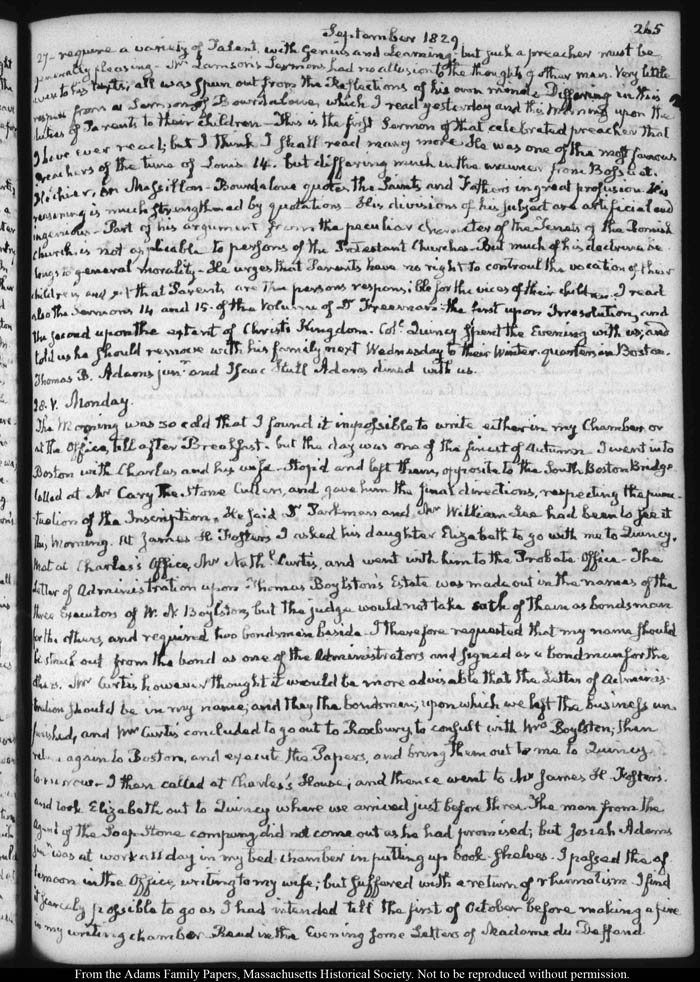 September 1829
265
27— require a variety of Talent, with Genius and Learning— but such a preacher must be
generally pleasing— Mr Lamson's Sermons had no allusion to the thoughts of other men. Very little
even to his texts; all was spun out from the Reflections of his own mind— Differing in this
respect from a Sermon of Bourdaloue, which I read yesterday and this Morning upon the
duties of Parents to their Children— This is the first Sermon of that celebrated preacher that
I have ever read; but I think I shall read many more. He was one of the most famous
Preachers of the time of Louis 14. but differing much in the manner from Bossuet.
Flechier, or Massillon— Bourdaloue quotes the Saints and Fathers in great profusion. His
reasoning is much strengthened by quotations— His divisions of his subject are artificial and
ingenious— Part of his argument from the peculiar character of the Tenets of the Romish
Church is not applicable to persons of the Protestant Churches— But much of his doctrine be-
longs to general morality— He urges that Parents have no right to controul the vocation of their
children, and yet that Parents are the persons responsible for the vices of their children. I read
also the Sermons 14 and 15. of the Volume of Dr Freeman— the first upon Irresolution, and
the second upon the extent of Christ's Kingdom. Coll. Quincy spent the Evening with us; and
told us he should remove with his family next Wednesday to their Winter-quarters in Boston.
Thomas B. Adams junr. and Isaac Hull Adams dined with us.
28. V. Monday.
The Morning was so cold that I found it impossible to write either in my Chamber, or
at the Office, till after Breakfast. but the day was one of the finest of Autumn. I went into
Boston with Charles and his wife— Stop'd and left them, opposite to the South Boston Bridge
Called at Mr Cary The Stone Cutters, and gave him the final directions, respecting the punc-
tuation of the Inscription. He said Dr Parkman and Mr William Lee had been to see it
this Morning. At James H. Foster's I asked his daughter Elizabeth to go with me to Quincy.
Met at Charles's Office, Mr Nathl. Curtis, and went with him to the Probate Office— The
Letter of Administration upon Thomas Boylston's Estate was made out in the names of the
three Executors of W. N Boylston, but the judge would not take each of them as bondsman
for the others, and required two bondsmen beside. I therefore requested that my name should
be struck out from the bond as one of the Administrators and signed as a bondsman for the
others. Mr Curtis however thought it would be more advisable that the Letter of Adminis-
tration should be in my name; and they the bondsmen; upon which we left the business un-
finished, and Mr Curtis concluded to go out to Roxbury, to consult with Mrs Boylston; then
again to Boston, and execute the Papers, and bring them out to me to Quincy
to-morrow— I then called at Charles's House; and thence went to Mr James H. Foster's.
and took Elizabeth out to Quincy where we arrived just before three. The man from the
Agent of the Soap-Stone company, did not come out as he had promised; but Josiah Adams
junr was at work all day in my bed-chamber in putting up book-shelves. I passed the af-
ternoon in the Office, writing to my wife; but suffered with a return of rheumatism. I find
it scarcely possible to go as I had intended till the first of October before making a fire
in my writing chamber. Read in the Evening some Letters of Madame du Deffand
From the Adams Family Papers, Massachusetts Historical Society. Not to be reproduced without permission.